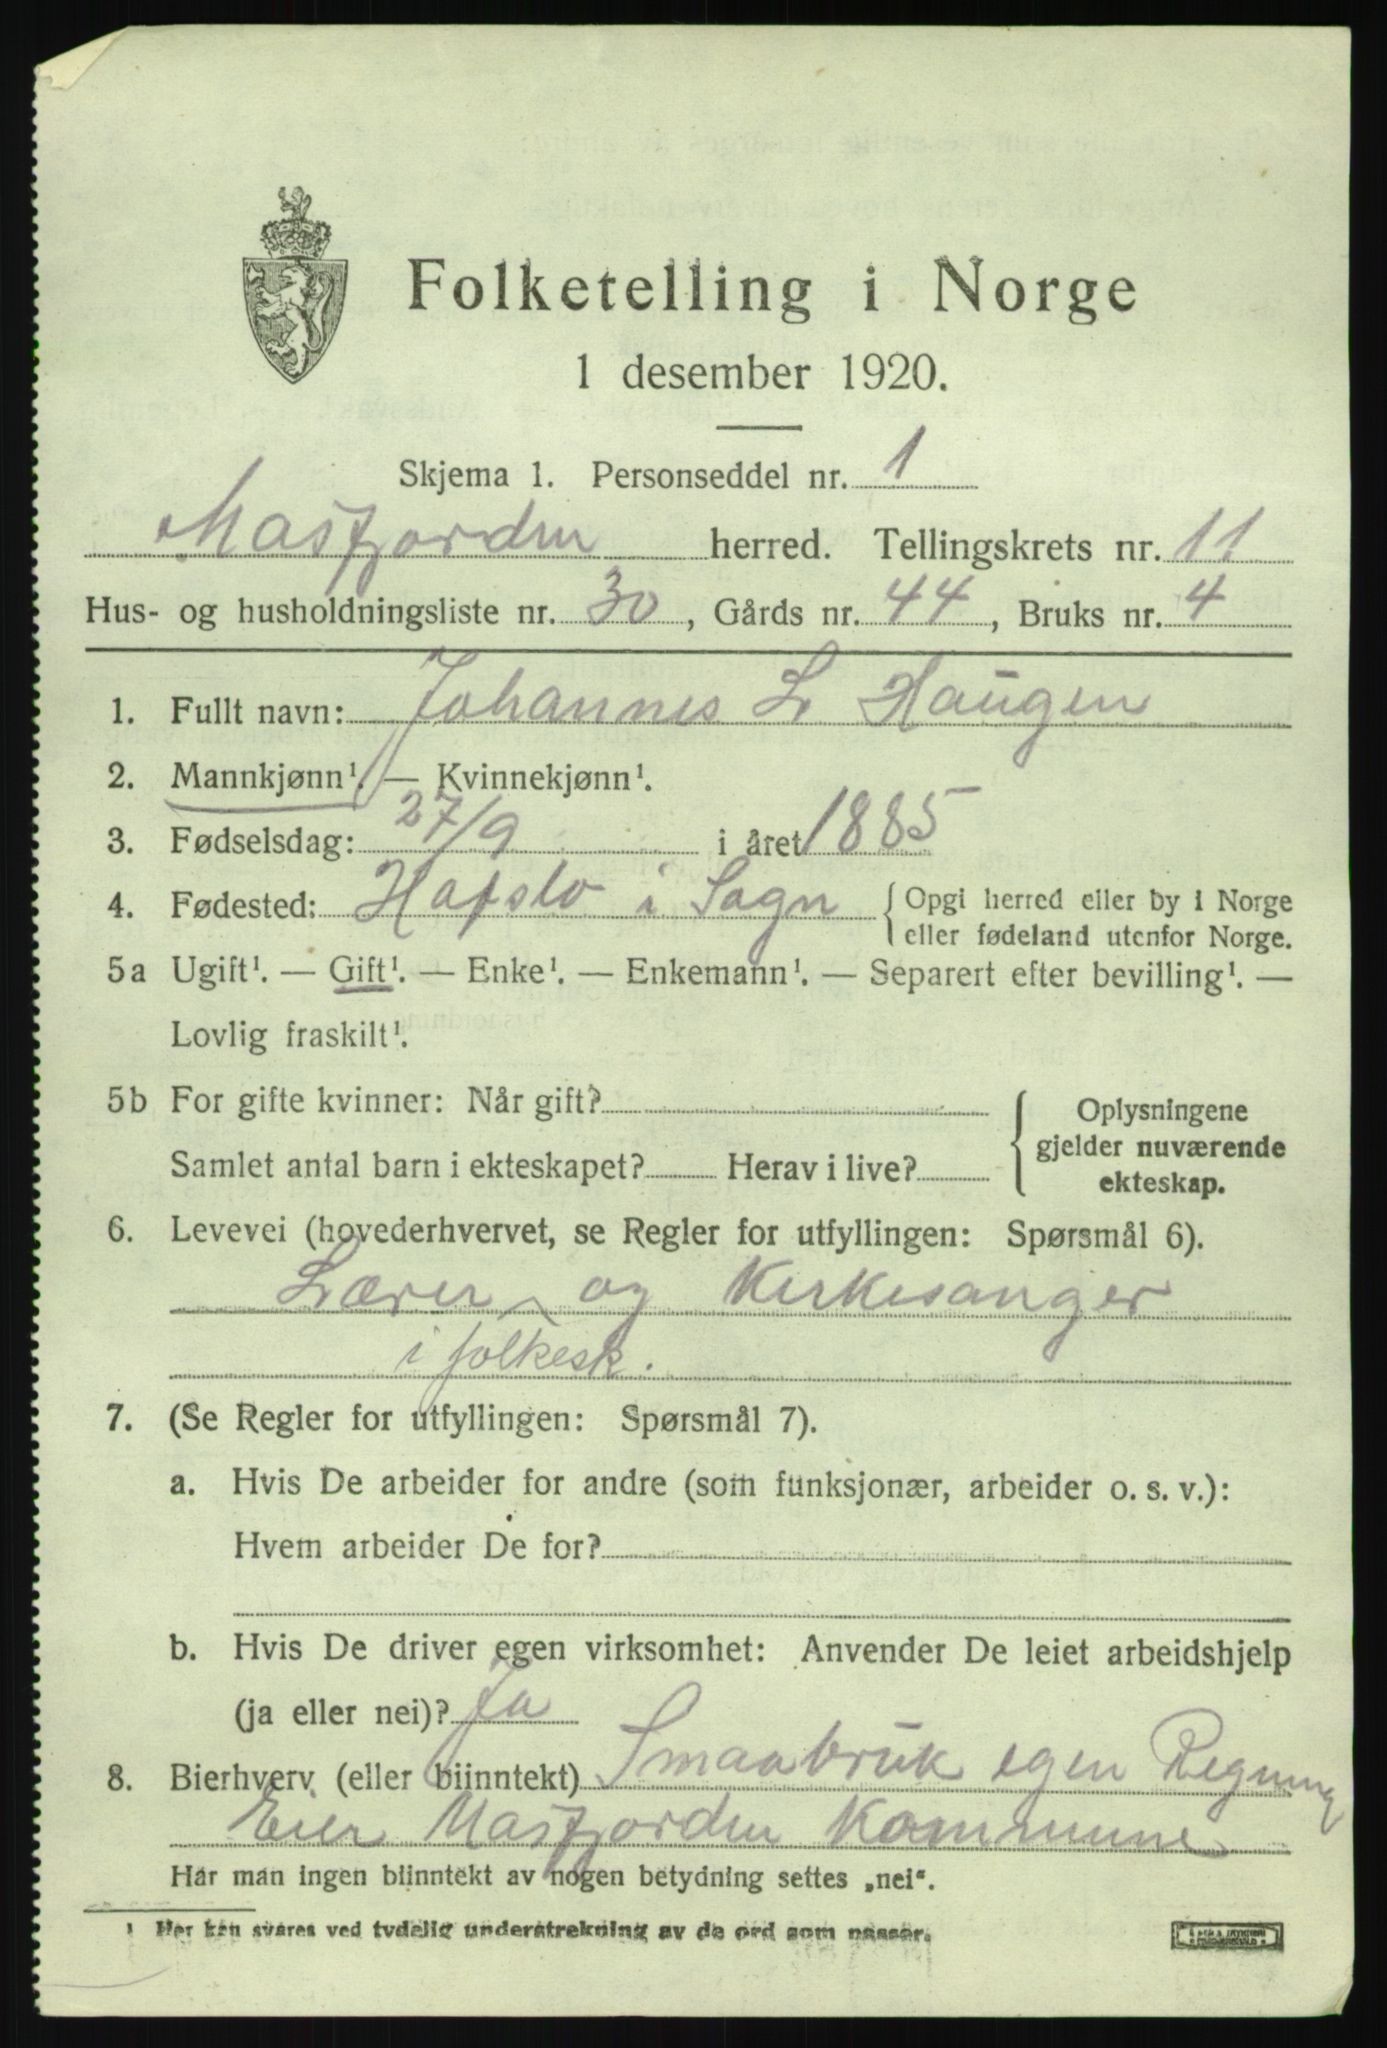 Folketelling i Norge
1 desember 1920.
Skjema 1. Personseddel nr. 1
Masfjorden herred. Tellingskrets nr. 11
Hus- og husholdningsliste nr. 30, Gårds nr. 44, Bruks nr. 4
1. Fullt navn: Johannes L Haugen
2. Mannkjønn¹. — Kvinnekjønn¹.
3. Fødselsdag: 27/9 i året 1885
4. Fødested: Hafslo i Sogn { Opgi herred eller by i Norge
eller fødeland utenfor Norge.
5a Ugift¹. — Gift¹. — Enke¹. — Enkemann¹. — Separert efter bevilling¹. —
Lovlig fraskilt¹.
5b For gifte kvinner: Når gift?
Samlet antal barn i ekteskapet? Herav i live?
{ Oplysningene
gjelder nuværende
ekteskap.
6. Levevei (hovederhvervet, se Regler for utfyllingen: Spørsmål 6).
Lærer og Kirkesanger
i folkesk.
7. (Se Regler for utfyllingen: Spørsmål 7).
a. Hvis De arbeider for andre (som funksjonær, arbeider o. s. v.):
Hvem arbeider De for?
b. Hvis De driver egen virksomhet: Anvender De leiet arbeidshjelp
(ja eller nei)? Ja
8. Bierhverv (eller biinntekt) Smaabruk egen Regning
Eier Masfjorden Kommune
Har man ingen biinntekt av nogen betydning settes „nei“.
¹ Her kan svares ved tydelig understrekning av de ord som passer.